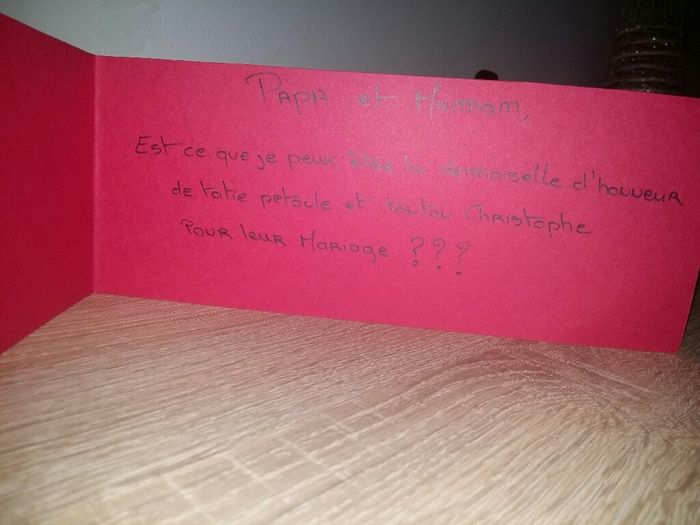 Papa et Maman,
Est ce que je peux être la demoiselle d'honneur
de tatie petoule et tonton Christophe
Pour leur Mariage ???